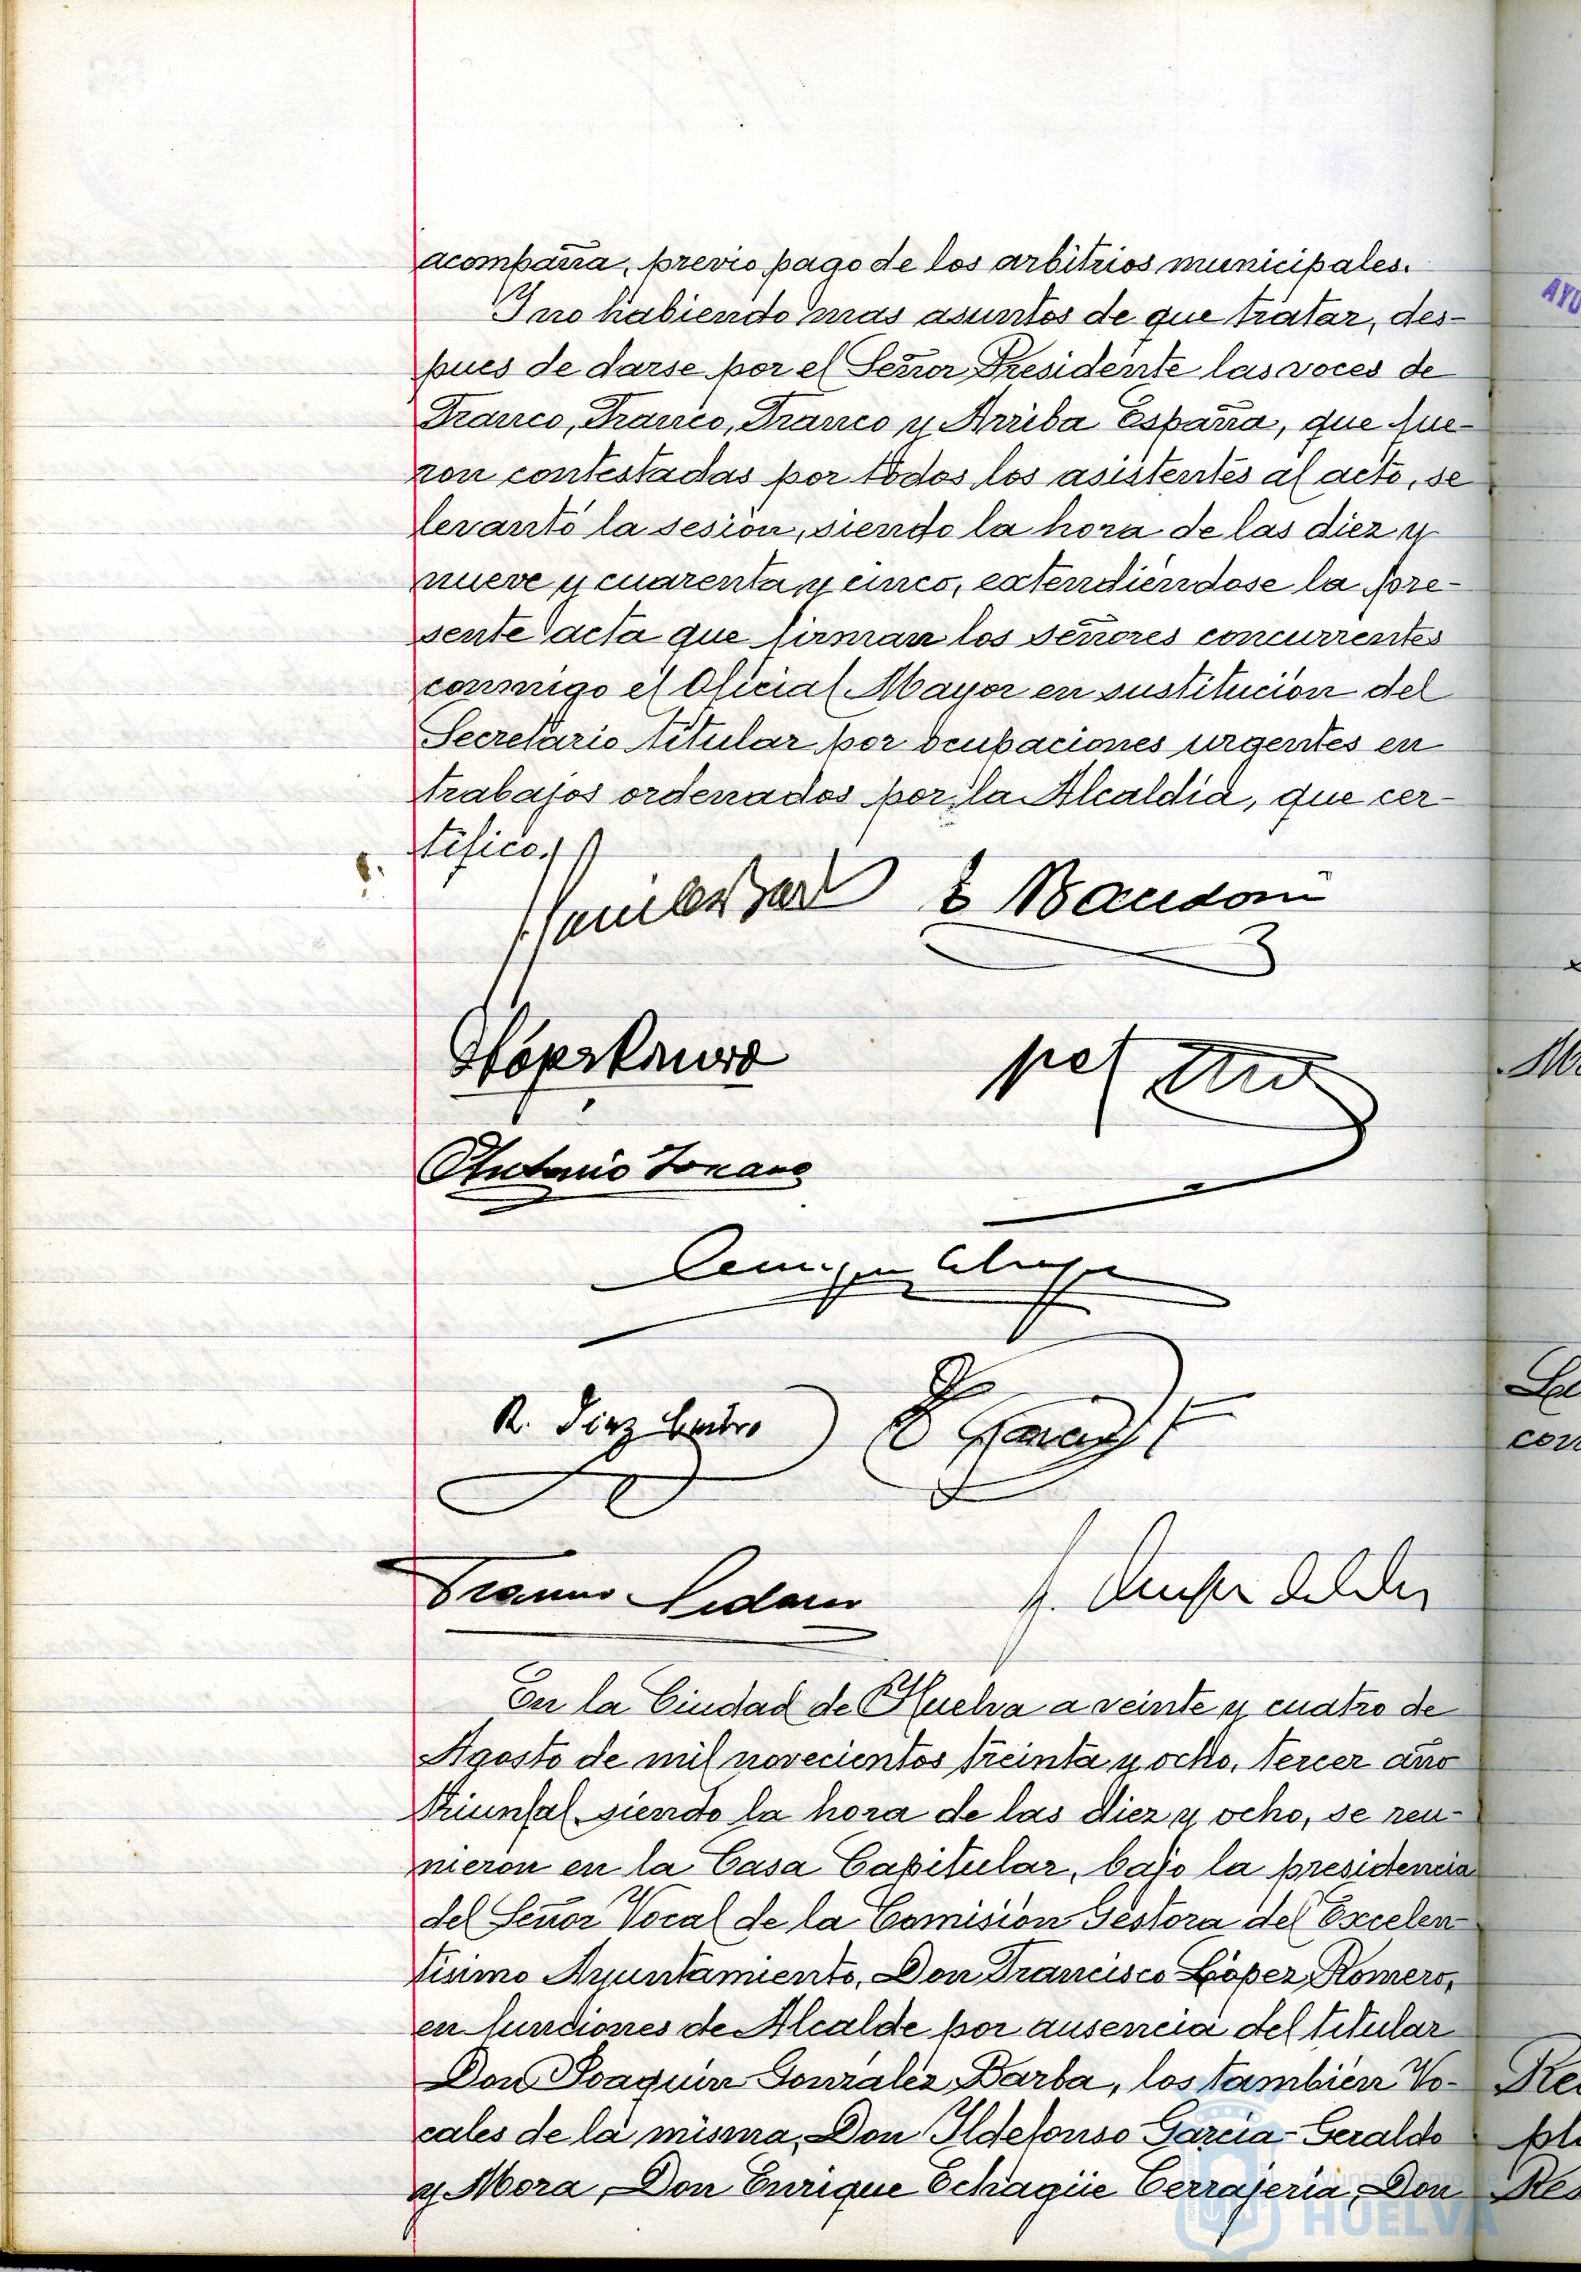 acompaña, previo pago de los arbitrios municipales.
Y no habiendo mas asuntos de que tratar, des-
pues de darse por el Señor Presidente las voces de
Franco, Franco, Franco y Arriba España, que fue-
ron contestadas por todos los asistentes al acto, se
levantó la sesión, siendo la hora de las diez y
nueve y cuarenta y cinco, extendiéndose la pre-
sente acta que firman los señores concurrentes
conmigo el Oficial Mayor en sustitución del
Secretario titular por ocupaciones urgentes en
trabajos ordenados por la Alcaldía, que cer-
tifico.
Antonio
R. Diaz
Garcia
En la Ciudad de Huelva a veinte y cuatro de
Agosto de mil novecientos treinta y ocho, tercer año
triunfal siendo la hora de las diez y ocho, se reu-
nieron en la Casa Capitular, bajo la presidencia
del Señor Vocal de la Comisión Gestora del Excelen-
tisimo Ayuntamiento, Don Francisco López Romero,
en funciones de Alcalde por ausencia del titular
Don Joaquín González Barba, los también Vo-
cales de la misma, Don Ildefonso Garcia-Geraldo
y Mora, Don Enrique Echagüe Cerrajería, Don
Ayuntamiento de
HUELVA